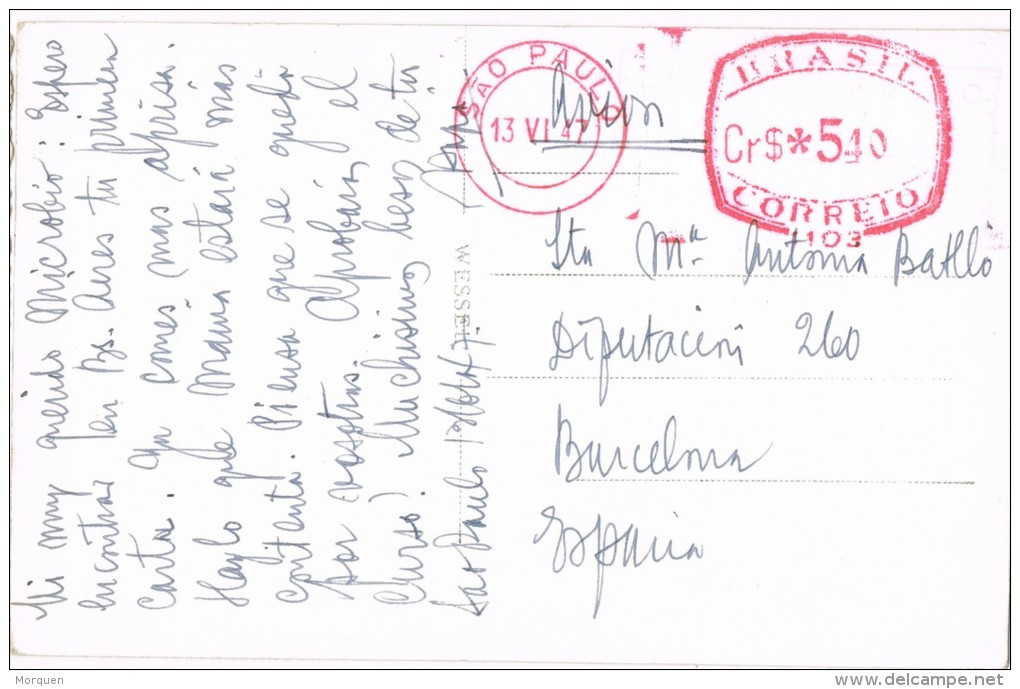 Mi muy querido Microbio: Espero
encontrar en Bs. Aires tu primera
carta. Ya comes mas aprisa.
Hazlo que Mamá estará mas
contenta. Piensa que se queda
por vosotros. Aprobarás el
Curso? Muchisimos besos de tu
Papi
Sao Paulo
WESSEL
SÃO PAULO
13 VI 47
Avion
BRASIL
Cr$*540
CORREIO
1103
Sta Mª Antonia Batlló
Diputación 260
Barcelona
España
Morquen
www.delcampe.net